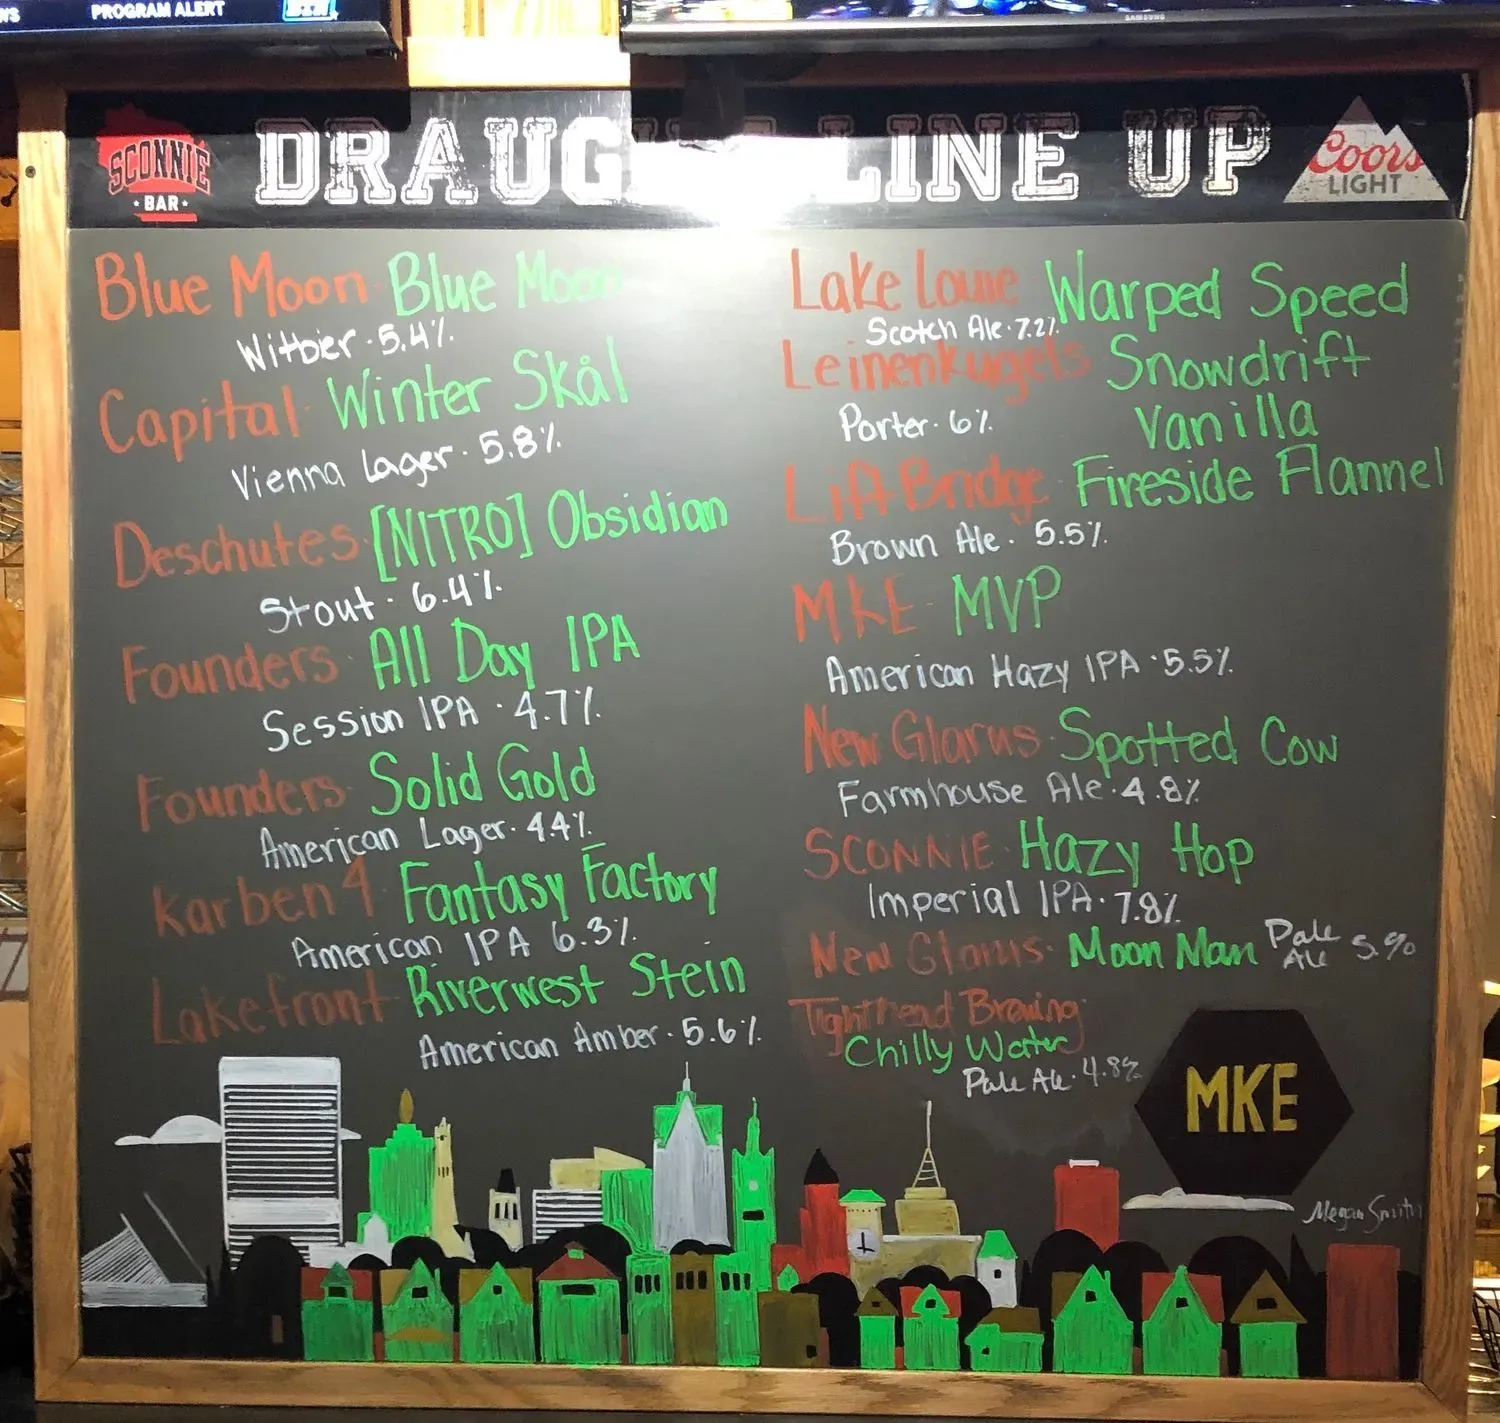 PROGRAM ALERT
BTN
SAMSUNG
SCONNIE
BAR
DRAUG LINE UP
Coors
LIGHT
Blue Moon · Blue Moon
Witbier · 5.4%
Capital · Winter Skål
Vienna Lager · 5.8%
Deschutes · [NITRO] Obsidian
Stout · 6.4%
Founders · All Day IPA
Session IPA · 4.7%
Founders · Solid Gold
American Lager · 4.4%
Karben 4 · Fantasy Factory
American IPA 6.3%
Lakefront · Riverwest Stein
American Amber · 5.6%
Lake Louie Warped Speed
Scotch Ale · 7.2%
Leinenkugels Snowdrift
Porter · 6% Vanilla
Lift Bridge · Fireside Flannel
Brown Ale · 5.5%
MKE · MVP
American Hazy IPA · 5.5%
New Glarus · Spotted Cow
Farmhouse Ale · 4.8%
SCONNIE · Hazy Hop
Imperial IPA · 7.8%
New Glarus · Moon Man Pale Ale 5%
Tighthead Brewing
Chilly Water
Pale Ale · 4.8%
MKE
Megan Smith